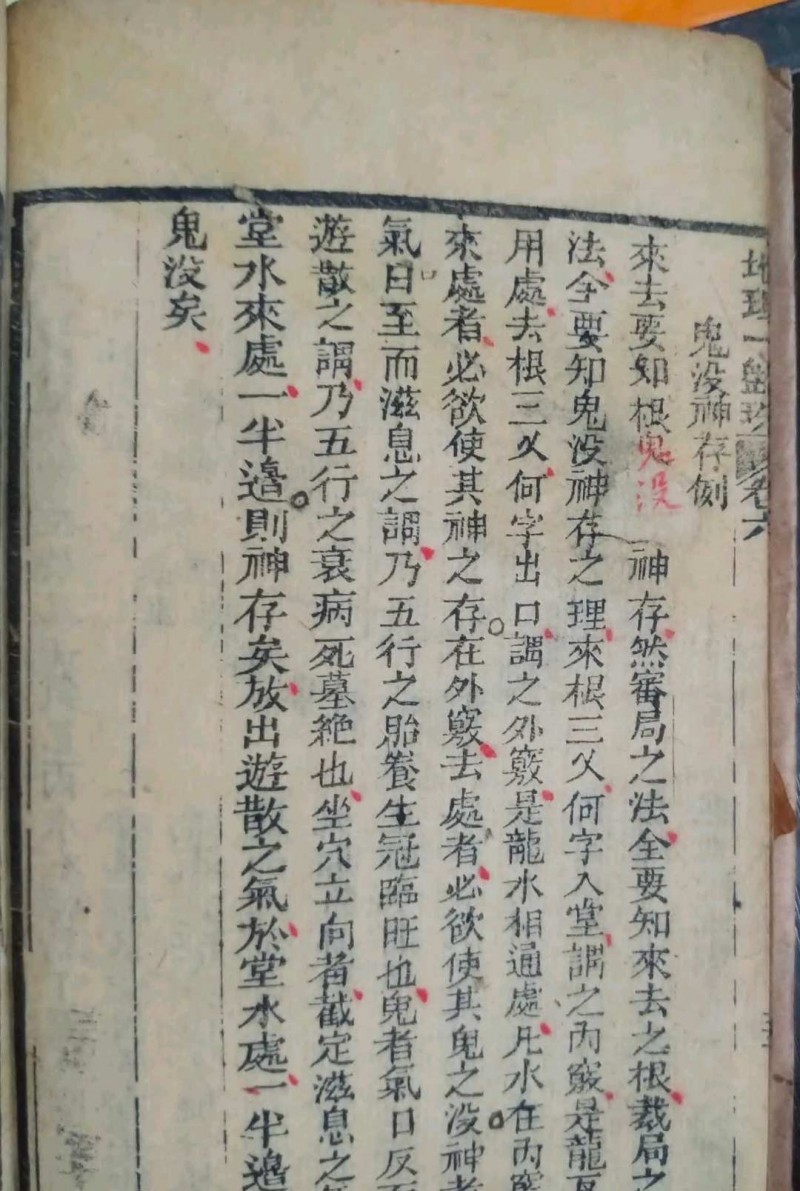 地理一盤珍 卷六
鬼没神存例
來去要知根鬼没神存然審局之法全要知來去之根裁局之
法全要知鬼没神存之理來根三乂何字入堂謂之内竅是龍
用處去根三乂何字出口謂之外竅是龍水相通處凡水在内竅
來處者必欲使其神之存在外竅去處者必欲使其鬼之没神者
氣日至而滋息之謂乃五行之胎養生冠臨旺也鬼者氣日反而
遊散之謂乃五行之衰病死墓絶也坐穴立向者截定滋息之
堂水來處一半邉則神存矣放出遊散之氣於堂水處一半邉
鬼没矣